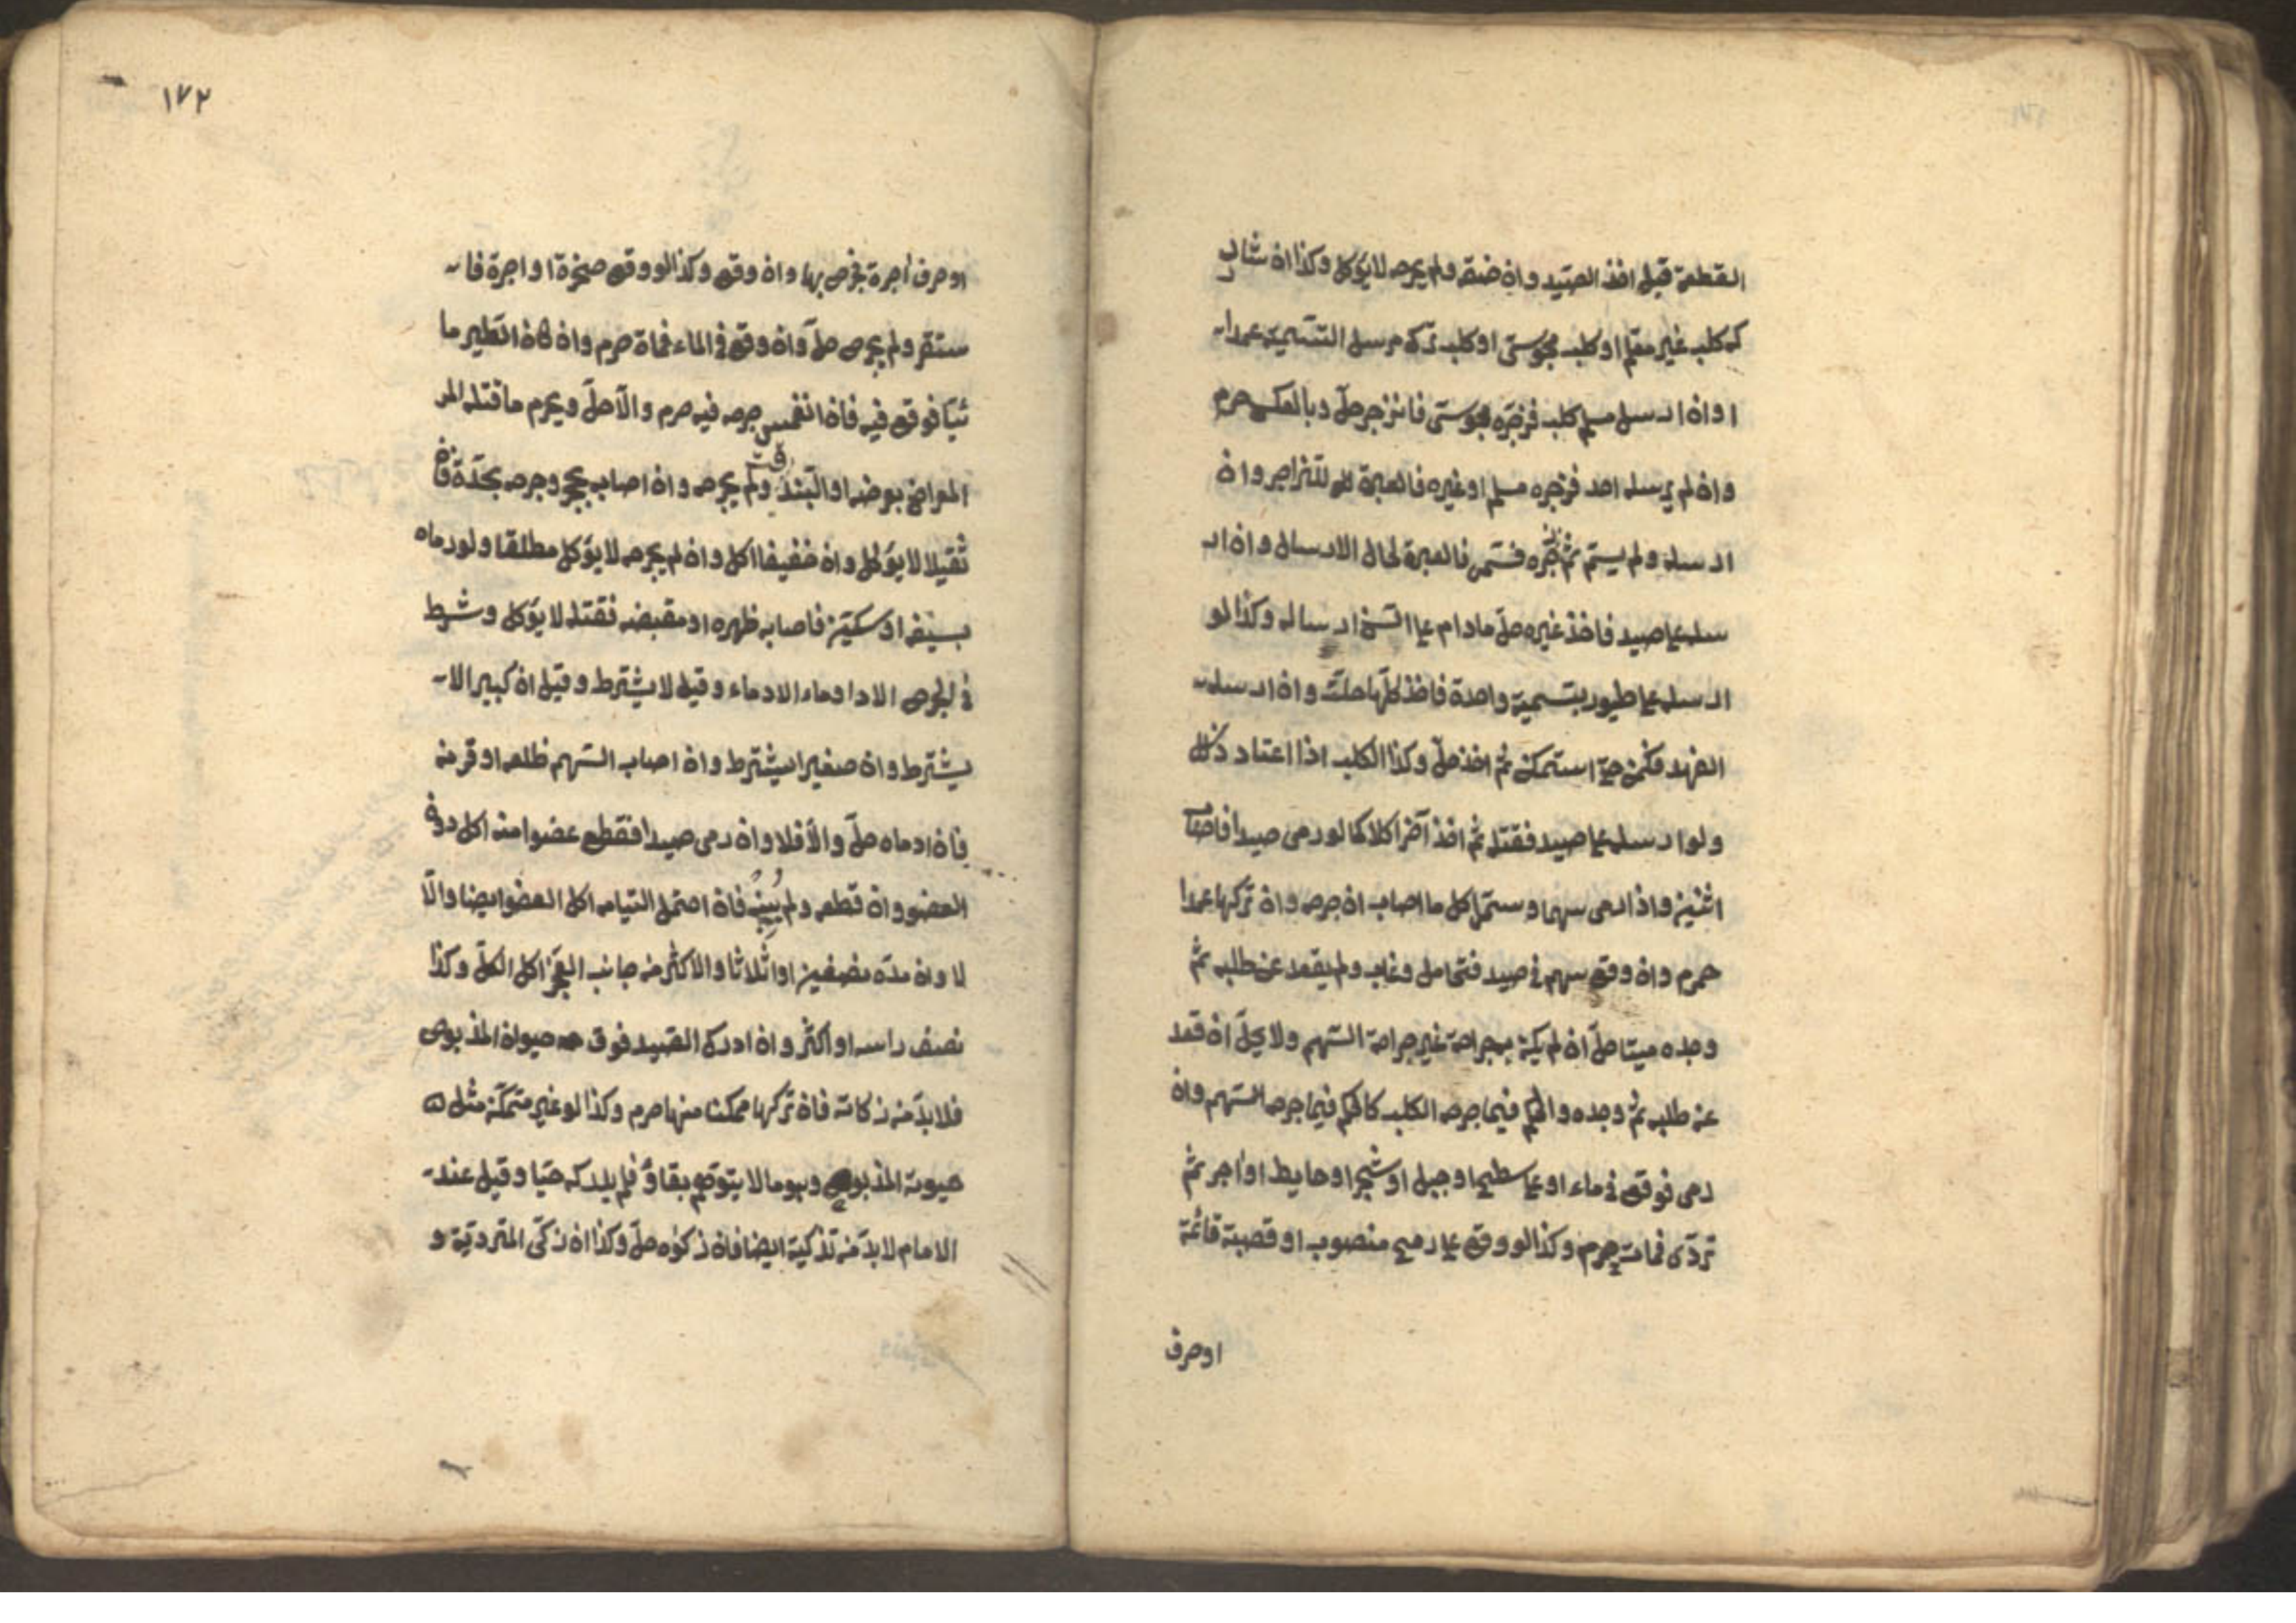 القطعة قبل اخذ الصيد وان خنقه ولم يجرحه لا يؤكل وكذا ان شار
كه كلب غير معلم او كلب مجوسى او كلب ترك مرسل التسمية عمدا
او ان ارسل مسلم كلبه فزجره مجوسى فانزجر حل وبالعكس حرم
وان لم يرسله احد فزجره مسلم او غيره فالعبرة للزاجر وان
ارسله ولم يسم ثم زجره فسمى فالعبرة لحال الارسال وان ار
سله على صيد فاخذ غيره حل مادام على سنن ارساله وكذا لو
ارسله على طيور بتسمية واحدة فاخذ كلها حلت وان ارسله
الفهد فكمن حتى استمكن ثم اخذ حل وكذا الكلب اذا اعتاد ذلك
ولو ارسله على صيد فقتله ثم اخذ آخر اكلا كما لو رمى صيدا فاصاب
اثنين واذا رمى سهما وسمى اكل ما اصاب ان جرحه وان تركها عمدا
حرم وان وقع سهم فى صيد فتحامل وغاب ولم يقعد عن طلبه ثم
وجده ميتا حل ان لم يكن به جراحة غير جراحة السهم ولا يحل ان قعد
عن طلبه ثم وجده والحكم فيما جرحه الكلب كالحكم فيما جرحه السهم وان
رمى فوقع فى ماء او على سطح او جبل او شجر او حايط او آجر ثم
تردى فمات حرم وكذا لو وقع على رمح منصوب او قصبة قائمة
او حرف
١٧٢
او حرف آجرة فجرح بها وان وقع وكذا لو وقع صخرة او اجرة فا
ستقر ولم يجرح حل وان وقع فى الماء فمات حرم وان كان الطير ما
ئيا فوقع فيه فان انغمس جرحه فيه حرم والا حل ويحرم ما قتله المر
المعراض بعرضه او البندقة ولم يجرحه وان اصاب بحجر وجرحه بحدة فان
ثقيلا لا يؤكل وان خفيفا اكل وان لم يجرحه لا يؤكل مطلقا ولو رماه
بسيف او سكين فاصابه ظهره او مقبضه فقتله لا يؤكل وشرط
فى الجرح الادماء وقيل لا يشترط وقيل ان كبيرا لا
يشترط وان صغيرا يشترط وان اصاب السهم ظلعه او قرنه
فان ادماه حل والا فلا وان رمى صيدا فقطع عضوا منه اكل دون
العضو وان قطعه ولم يبنه فان احتمل التيامه اكل العضو ايضا والا
لا وان قده نصفين او اثلاثا والاكثر من جانب العجز اكل الكل وكذا
نصف راسه او اكثر وان ادرك الصيد فوق حيوة المذبوح
فلا بد من ذكاته فان تركها ممكنا منها حرم وكذا لو غير متمكن مثل
حيوته المذبوح وهو ما لا يتوقع بقاؤ فلم يدركه حيا وقيل عند
الامام لا بد من تذكيته ايضا فان ذكوه حل وكذا ان ذكى المتردية و